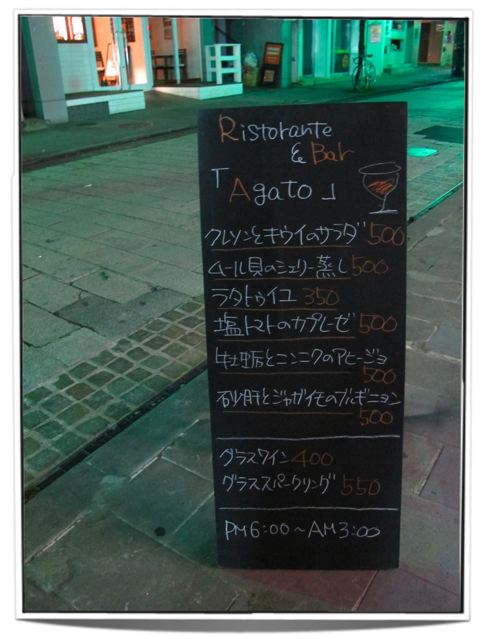 Ristorante
& Bar
「Agato」
クレソンとキウイのサラダ 500
ムール貝のシェリー蒸し 500
ラタトゥイユ 350
塩トマトのカプレーゼ 500
牡蛎とニンニクのアヒージョ
500
砂肝とジャガイモのブルギニョン
500
グラスワイン 400
グラススパークリング 550
PM6:00〜AM3:00